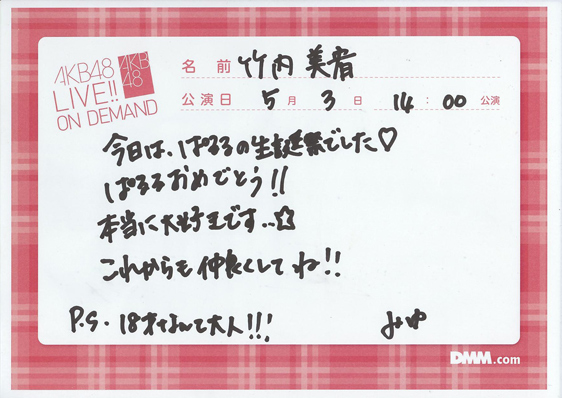 AKB48
LIVE!!
ON DEMAND
AKB
48
名 前 竹内 美宥
公演日 5 月 3 日 14 : 00 公演
今日は、ぱるるの生誕祭でした♡
ぱるるおめでとう!!
本当に大好きです..☆
これからも仲良くしてね!!
P.S. 18才なんて大人!!!
みゆ
DMM.com